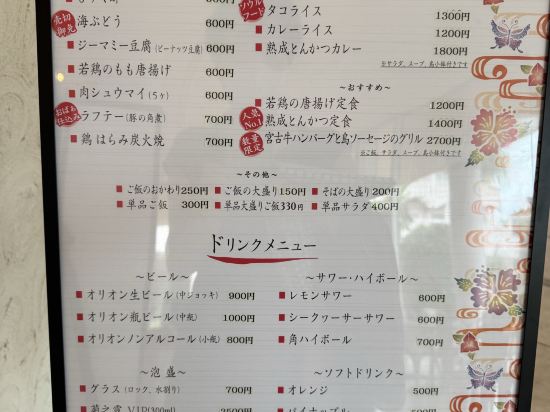 売切御免 海ぶどう 600円
ジーマミー豆腐(ピーナッツ豆腐) 600円
若鶏のもも唐揚げ 600円
肉シュウマイ(5ヶ) 600円
おばぁ仕込み ラフテー(豚の角煮) 700円
鶏はらみ炭火焼 700円
ソウルフード タコライス 1300円
カレーライス 1200円
熟成とんかつカレー 1800円
※サラダ、スープ、島小鉢付きです
〜おすすめ〜
若鶏の唐揚げ定食 1200円
人気No.1 熟成とんかつ定食 1400円
数量限定 宮古牛ハンバーグと島ソーセージのグリル 2700円
※ご飯、サラダ、スープ、島小鉢付きです
〜その他〜
ご飯のおかわり250円 ご飯の大盛り150円 そばの大盛り200円
単品ご飯 300円 単品大盛りご飯330円 単品サラダ400円
ドリンクメニュー
〜ビール〜
オリオン生ビール(中ジョッキ) 900円
オリオン瓶ビール(中瓶) 1000円
オリオンノンアルコール(小瓶) 800円
〜サワー・ハイボール〜
レモンサワー 600円
シークヮーサーサワー 600円
角ハイボール 700円
〜泡盛〜
グラス(ロック、水割り) 700円
菊之露 V.I.P(300ml) 2500円
〜ソフトドリンク〜
オレンジ 500円
パイナップル 500円